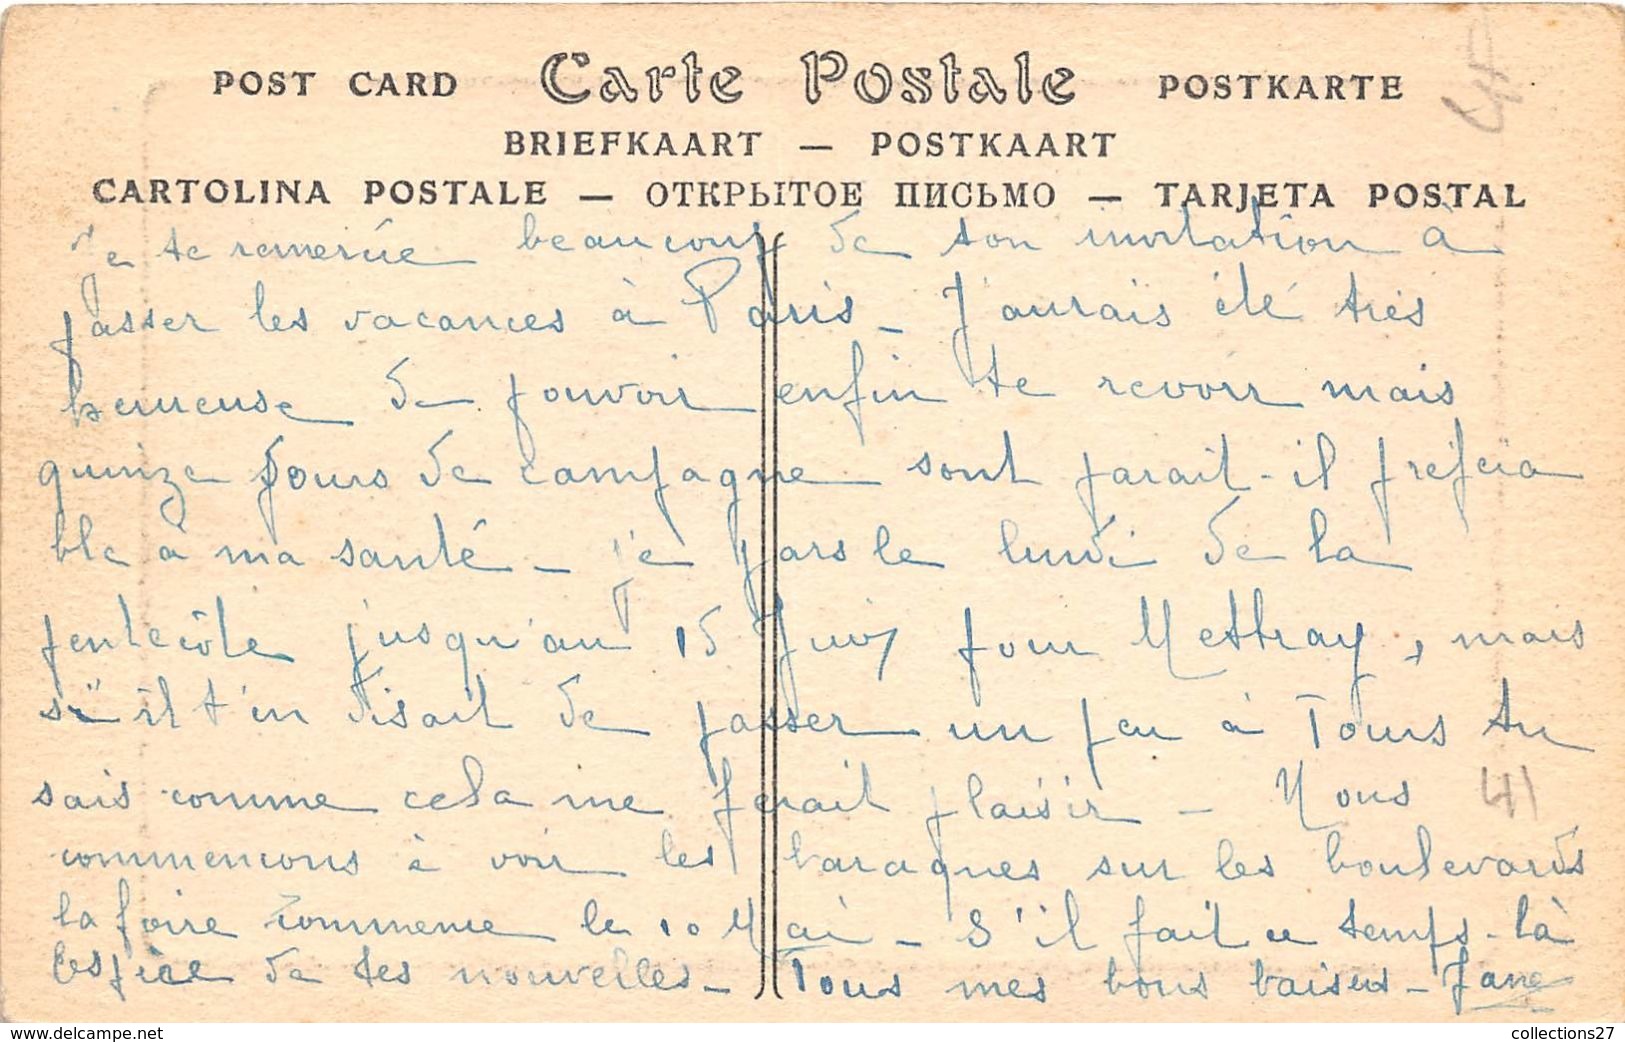 POST CARD Carte Postale POSTKARTE
BRIEFKAART — POSTKAART
CARTOLINA POSTALE — ОТКРЫТОЕ ПИСЬМО — TARJETA POSTAL
Je te remercie beaucoup de ton invitation à
passer les vacances à Paris - J'aurais été très
heureuse de pouvoir enfin te revoir mais
quinze jours de campagne sont parait-il préféra
ble à ma santé - je pars le lundi de la
pentecôte jusqu'au 15 Juin pour Mettray, mais
s'il t'en disait de passer un peu à Tours tu
sais comme cela me ferait plaisir - Nous
commencons à voir les baraques sur les boulevards
la foire commence le 10 Mai - S'il fait ce temps-là
espère de tes nouvelles - Tous mes bons baisers - Jane
41
collections27